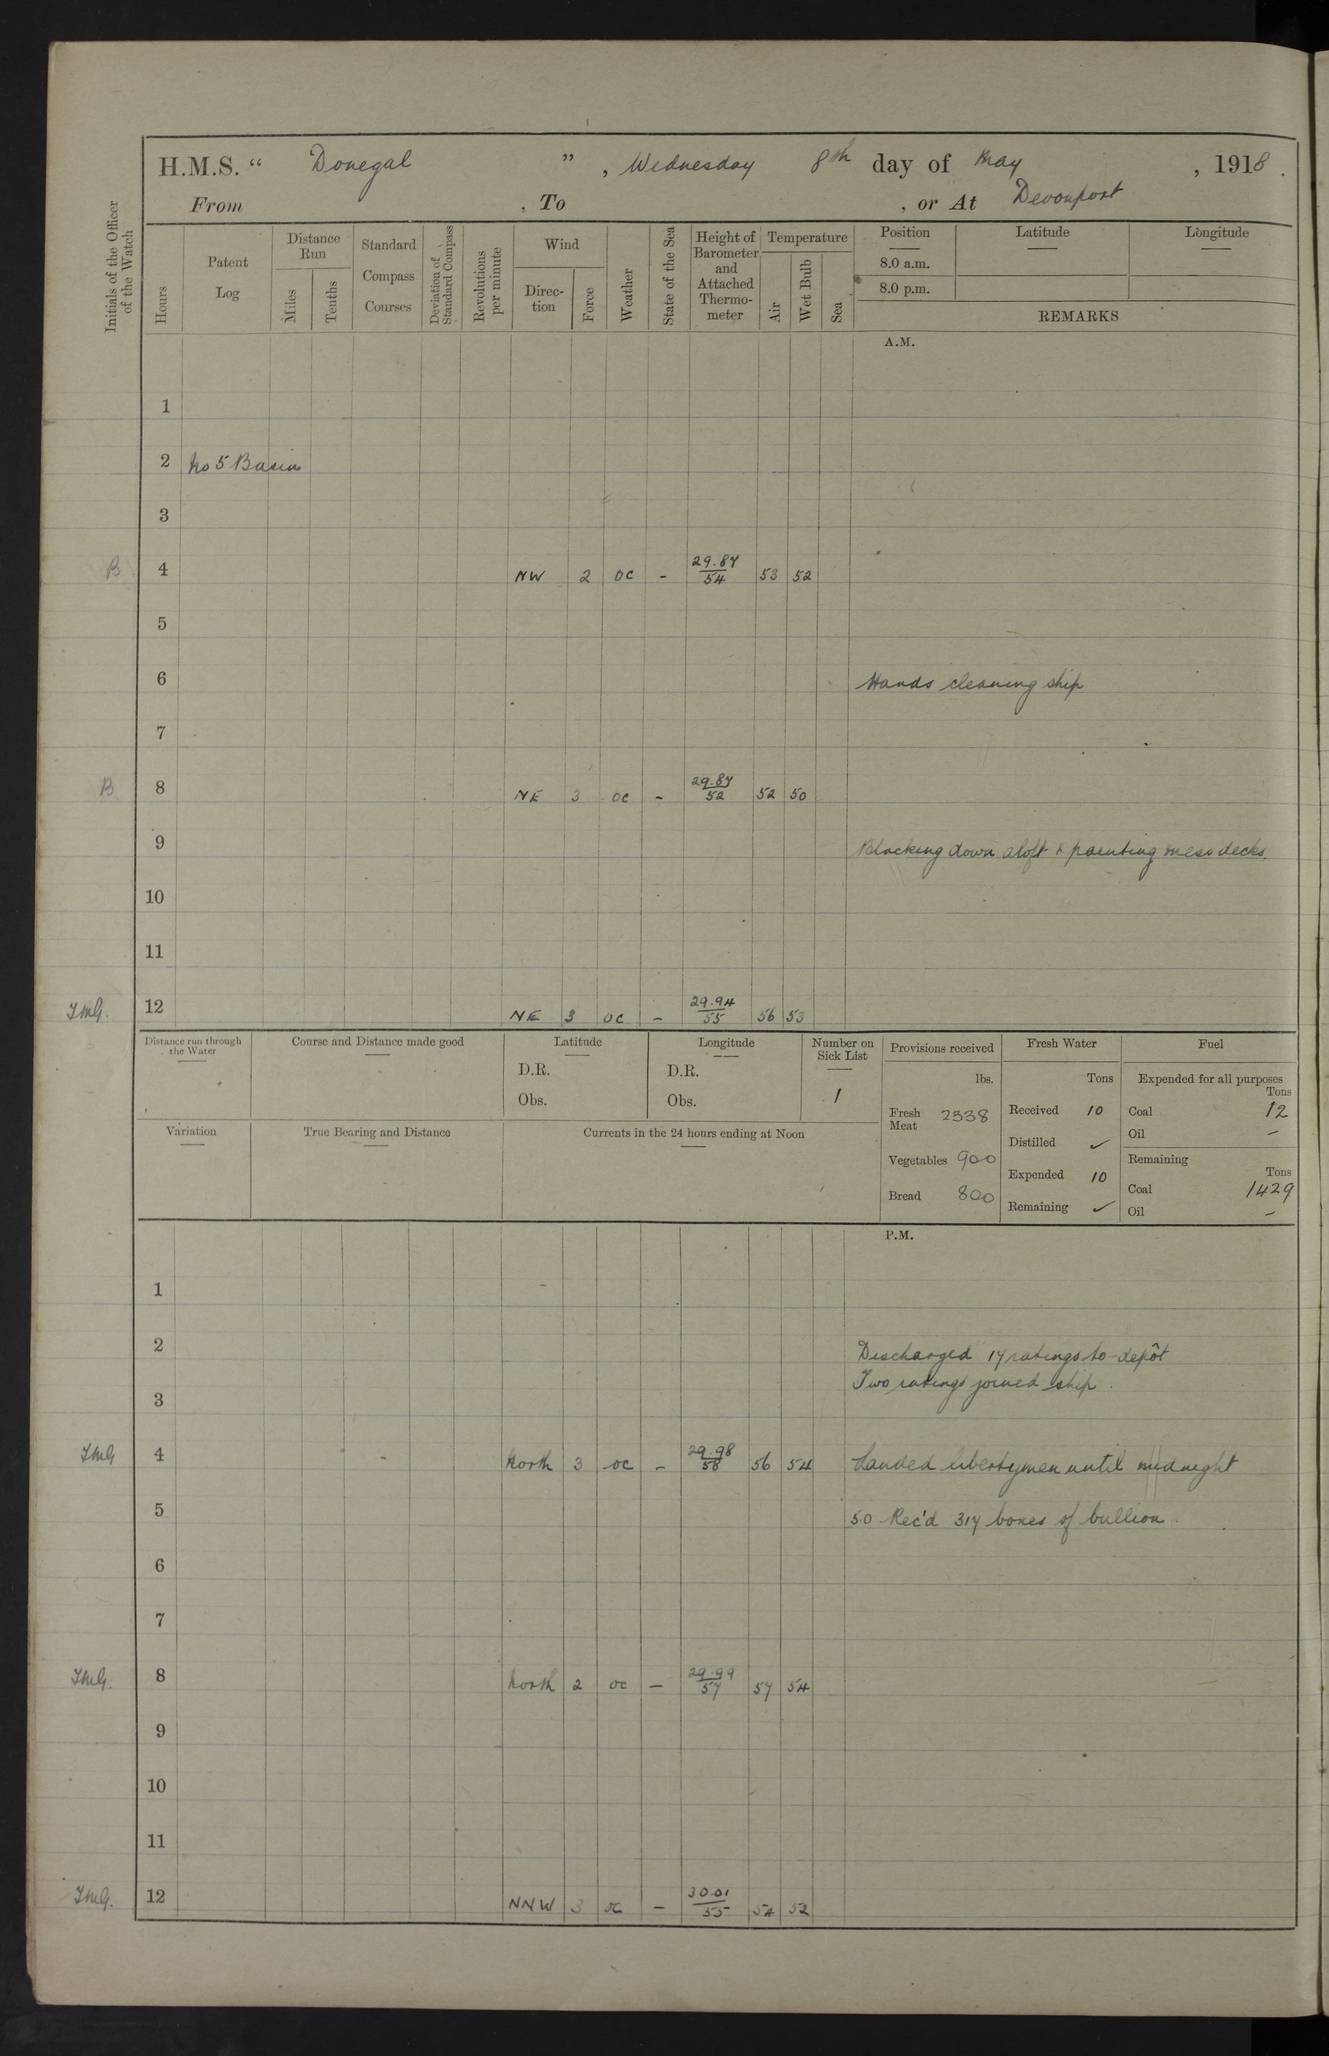 H.M.S. “ Donegal ” , Wednesday 8th day of May , 1918 .
From , To , or At Devonport
Initials of the Officer of the Watch
Hours
Patent Log
Distance Run
Miles
Tenths
Standard Compass Courses
Deviation of Standard Compass
Revolutions per minute
Wind
Direc-tion
Force
Weather
State of the Sea
Height of Barometer and Attached Thermo-meter
Temperature
Air
Wet Bulb
Sea
Position
8.0 a.m.
8.0 p.m.
Latitude
Longitude
REMARKS
A.M.
1
2 No 5 Basin
3
B 4 NW 2 oc - 29.87 54 53 52
5
6 Hands cleaning ship
7
B 8 NE 3 oc - 29.87 52 52 50
9 Blacking down aloft & painting mess decks.
10
11
12 NE 3 oc - 29.94 55 56 53
Distance run through the Water
Course and Distance made good
Latitude
D.R.
Obs.
Longitude
D.R.
Obs.
Number on Sick List
1
Variation
True Bearing and Distance
Currents in the 24 hours ending at Noon
Provisions received
lbs.
Fresh Meat 2338
Vegetables 900
Bread 800
Fresh Water
Tons
Received 10
Distilled ✓
Expended 10
Remaining ✓
Fuel
Expended for all purposes
Tons
Coal 12
Oil -
Remaining
Tons
Coal 1429
Oil -
P.M.
1
2 Discharged 17 ratings to depôt
Two ratings joined ship.
3
4 North 3 oc - 29.98 58 56 54 Landed libertymen until midnight
5 5.0 Rec'd 317 boxes of bullion.
6
7
8 North 2 oc - 29.99 57 57 54
9
10
11
12 NNW 3 oc - 30.01 55 54 52